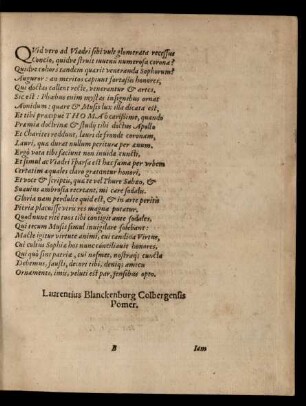 QVid vero ad Viadri sibi vult glomerata recessus
Concio, quidve struit juvenū numerosa corona?
Quidve cohors tandem quærit veneranda Sophorum?
Auguror: an meritos capiunt fortassis honores,
Qui doctas callent recte, venerantur & artes.
Sic est: Phœbus enim mystas insignibus ornat
Aonidum: quare & Musis lux illa dicata est.
Et tibi præcipuè THOMA charissime, quando
Præmia doctrinæ & studij tibi doctus Apollo
Et Charites reddunt, lauri de fronde coronam,
Lauri, quæ durat nullum peritura per ævum.
Ergò rata tibi faciunt non invida cuncti,
Et simul ac Viadri sparsa est hæc fama per vrbem
Certatim æquales claro gratantur honori,
Et voce & scriptis, quæ te vel Thure Sabæo, &
Suavini ambrosia recreant, mi care sodalis.
Gloria nam perdulce quid est, & in arte peritis
Pieria placuisse viris res magna putatur.
Quod nunc ritè tuis tibi contigit ante sodales,
Qui tecum Musis simul invigilare solebant:
Macte igitur virtute animi, cui candida Virtus,
Cui cultus Sophia hos nunc conciliavit honores,
Qui quò sint patriæ, cui nosmet, nostraq; cuncta
Debemus, fausti, decori tibi, deniq; amicu
Ornamento, imis, veluti est par, sensibus opto.
Laurentius Blanckenburg Colbergensis
Pomer.
B
Iam